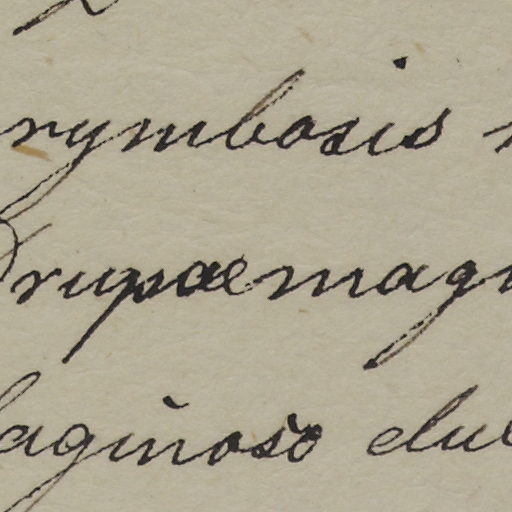 rymbosis
Drupae magn
laginoso dul